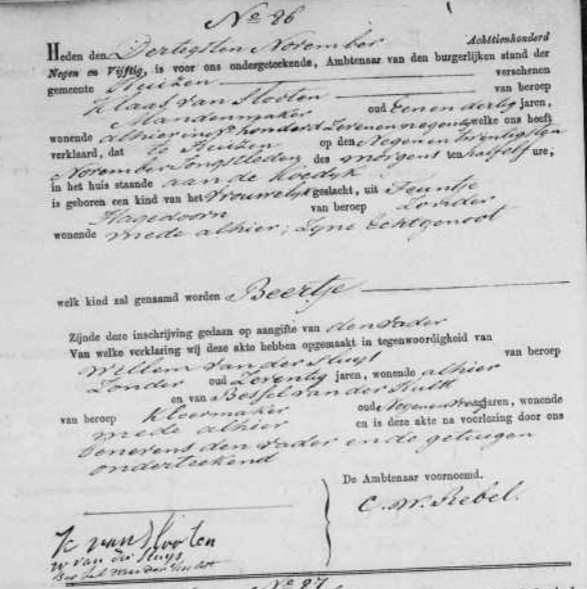 No 86
Heden den Dertigsten November Achttienhonderd
Negen en Vijftig, is voor ons ondergeteekende, Ambtenaar van den burgerlijken stand der
gemeente Huizen verschenen
Klaas van Slooten van beroep
Mandenmaker oud Eenendertig jaren,
wonende alhier in No honderd Zevenennegentig welke ons heeft
verklaard, dat te Huizen op den Negenentwintigsten
November Jongstleden des morgens ten half elf ure,
in het huis staande aan de Koedyk
is geboren een kind van het Vrouwelyk geslacht, uit Teuntje
Hagedoorn van beroep Zonder
wonende mede alhier; Zyne Echtgenoot
welk kind zal genaamd worden Beertje
Zijnde deze inschrijving gedaan op aangifte van den vader
Van welke verklaring wij deze akte hebben opgemaakt in tegenwoordigheid van
Willem van der Sluys van beroep
Zonder oud Zeventig jaren, wonende alhier
en van Bessel van der Hulst
van beroep Kleermaker oud jaren, wonende
mede alhier en is deze akte na voorlezing door ons
benevens den vader en de getuigen
onderteekend
De Ambtenaar voornoemd.
C. W. Rebel.
K van Slooten
W van der Sluys
Bessel van der Hulst
No 87